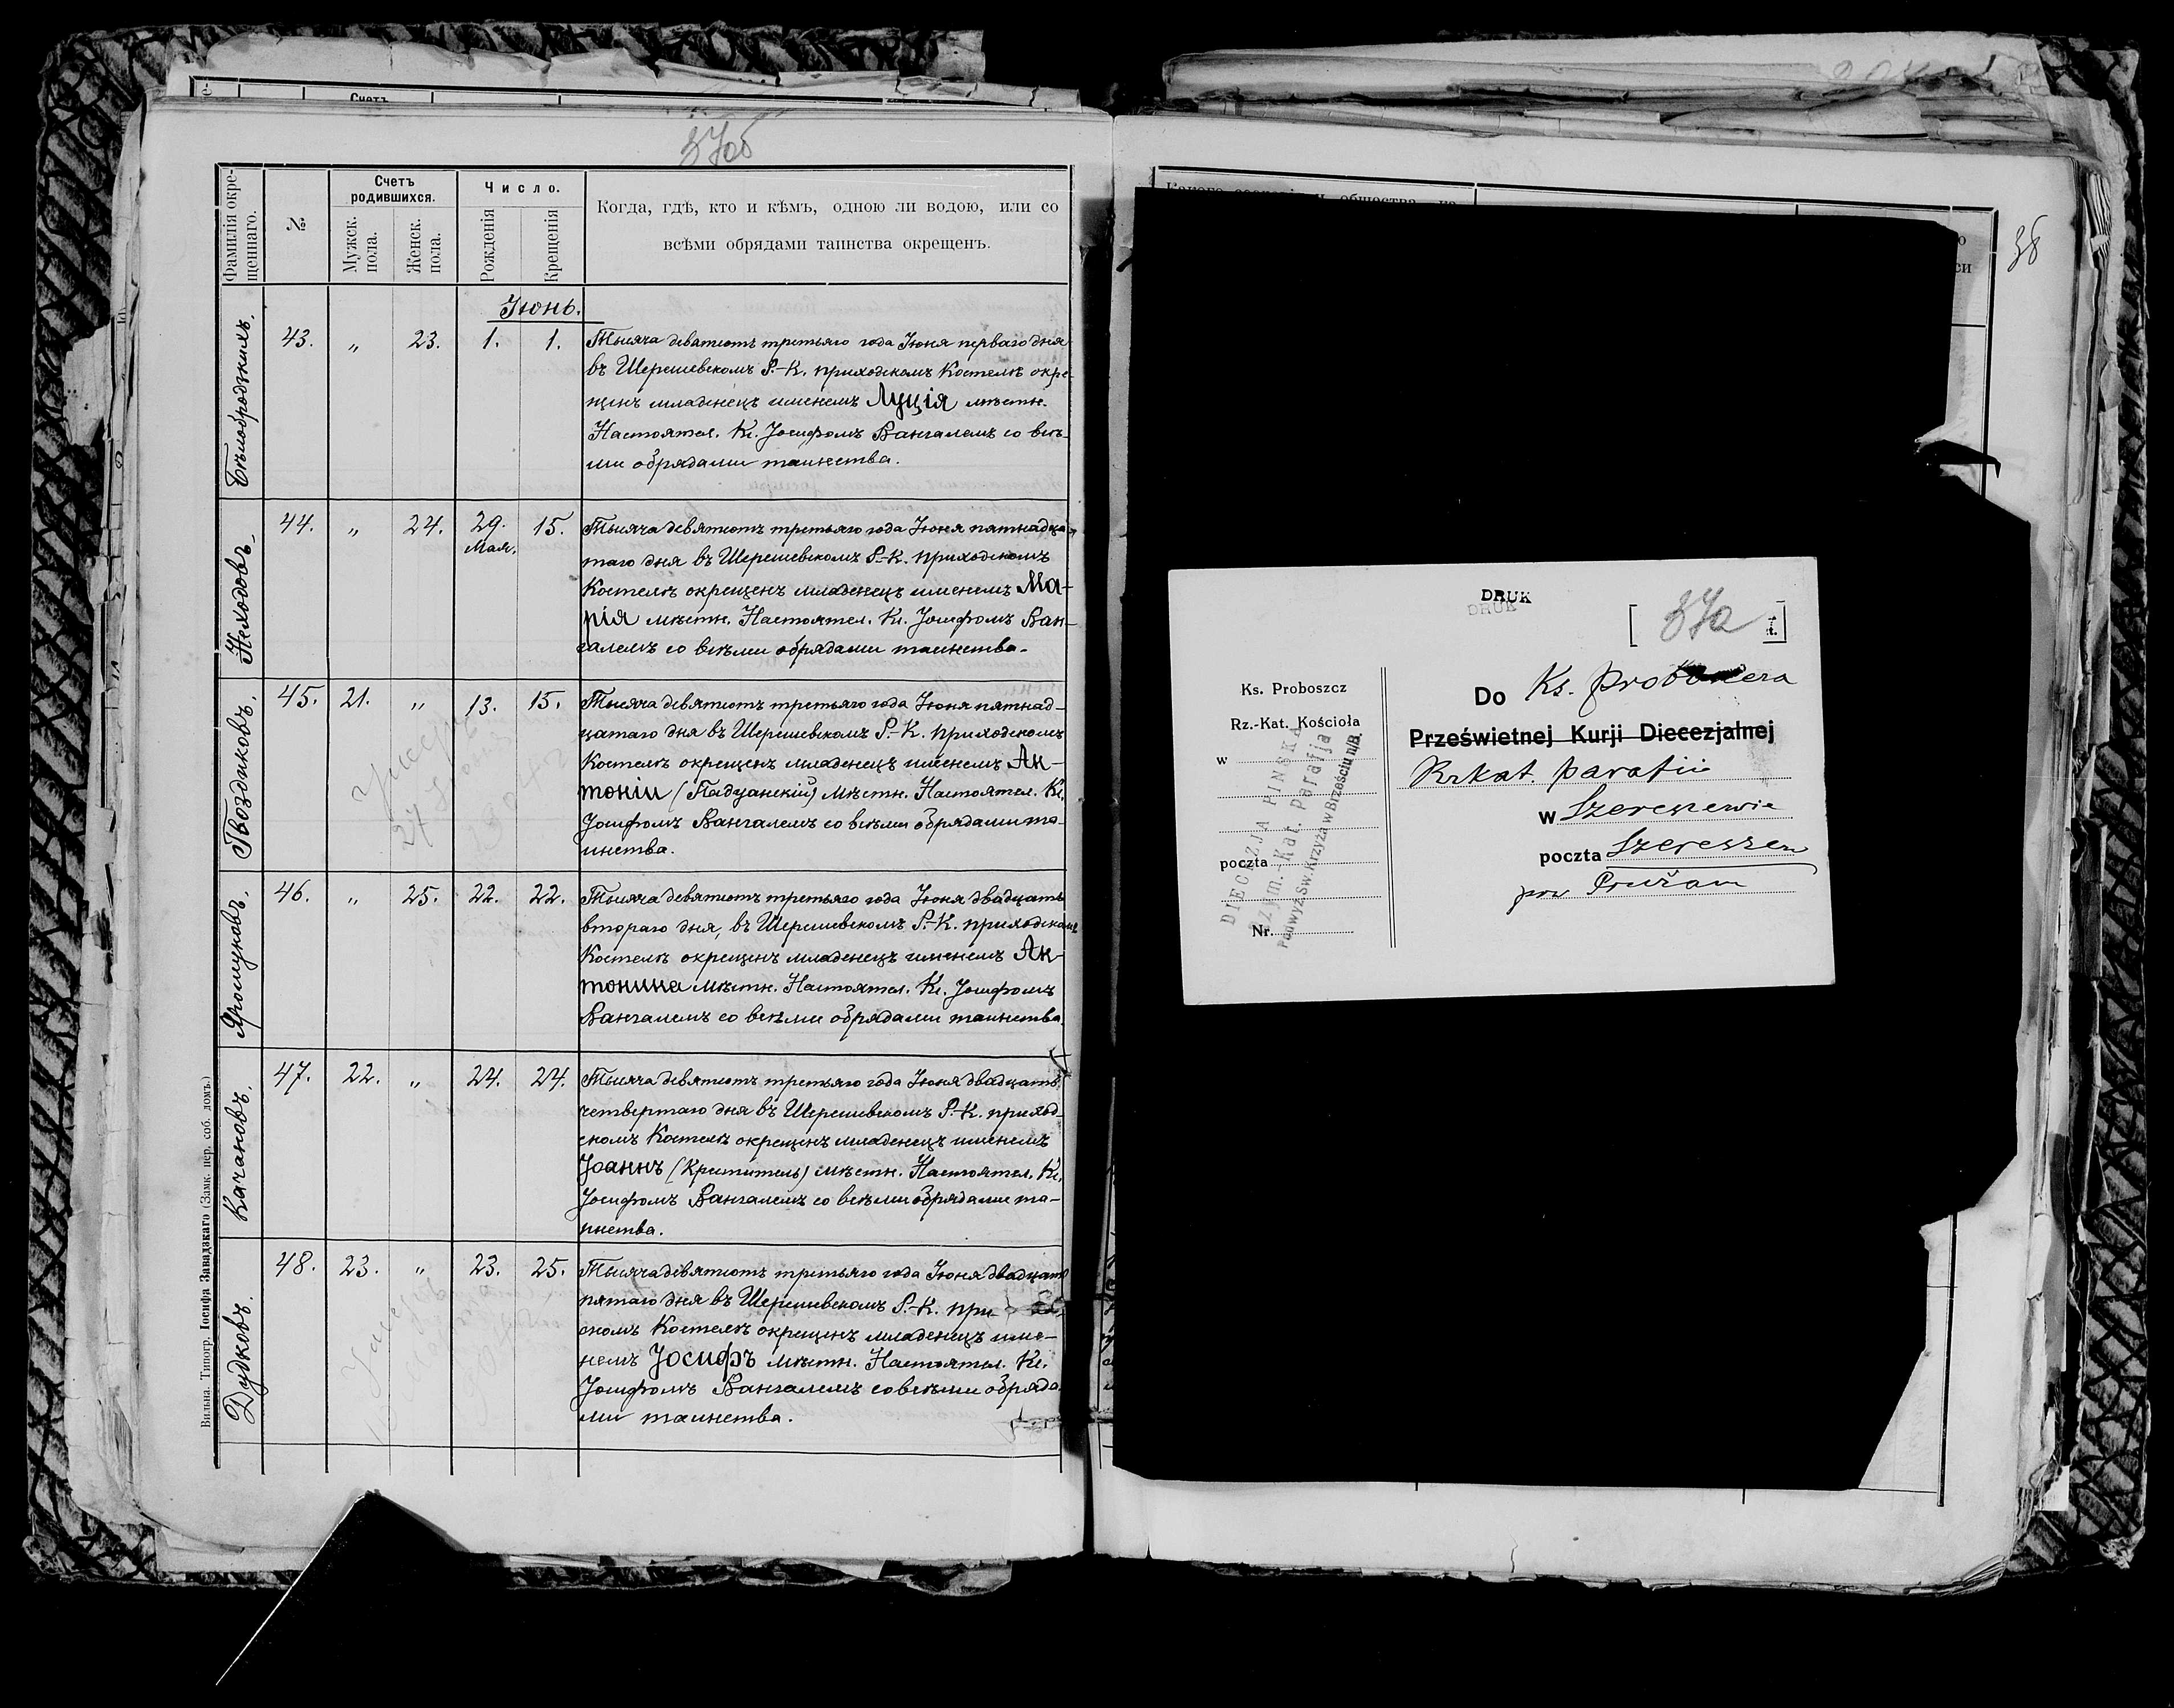 Счетъ
37об
Фамилія окре-
щеннаго.
№
Счетъ
родившихся.
Мужск.
пола.
Женск.
пола.
Число.
Рожденія
Крещенія
Когда, гдѣ, кто и кѣмъ, одною ли водою, или со
всѣми обрядами таинства окрещенъ.
Іюнь.
Бѣлобродскихъ.
43. „ 23. 1. 1.
Тысяча девятьсотъ третьяго года Іюня перваго дня
въ Шерешевскомъ Р.-К. приходскомъ Костелѣ окре-
щенъ младенецъ именемъ Луція мѣстн.
Настоятел. Кс. Іосифомъ Вангалемъ со всѣ-
ми обрядами таинства.
Неходовъ.
44. „ 24. 29. 15.
Мая.
Тысяча девятьсотъ третьяго года Іюня пятнадца-
таго дня въ Шерешевскомъ Р.-К. приходскомъ
Костелѣ окрещенъ младенецъ именемъ Ма-
рія мѣстн. Настоятел. Кс. Іосифомъ Ван-
галемъ со всѣми обрядами таинства.
Гвоздиковъ.
45. 21. „ 13. 15.
Тысяча девятьсотъ третьяго года Іюня пятнад-
цатаго дня въ Шерешевскомъ Р.-К. приходскомъ
Костелѣ окрещенъ младенецъ именемъ Ан-
тоній (Падуанскій) мѣстн. Настоятел. Кс.
Іосифомъ Вангалемъ со всѣми обрядами та-
инства.
Умеръ
27
Яромуковъ.
46. „ 25. 22. 22.
Тысяча девятьсотъ третьяго года Іюня двадцать
втораго дня, въ Шерешевскомъ Р.-К. приходскомъ
Костелѣ окрещенъ младенецъ именемъ Ан-
тонина мѣстн. Настоятел. Кс. Іосифомъ
Вангалемъ со всѣми обрядами таинства.
Качановъ.
47. 22. „ 24. 24.
Тысяча девятьсотъ третьяго года Іюня двадцать
четвертаго дня въ Шерешевскомъ Р.-К. приход-
скомъ Костелѣ окрещенъ младенецъ именемъ
Іоаннъ (Креститель) мѣстн. Настоятел. Кс.
Іосифомъ Вангалемъ со всѣми обрядами та-
инства.
Дудковъ.
48. 23. „ 23. 25.
Тысяча девятьсотъ третьяго года Іюня двадцать
пятаго дня въ Шерешевскомъ Р.-К. при
скомъ Костелѣ окрещенъ младенецъ име-
немъ Іосифъ мѣстн. Настоятел. Кс.
Іосифомъ Вангалемъ со всѣми обряда
ми таинства.
Вильна. Типогр. Іосифа Завадзкаго (Замк. пер. соб. домъ.)
38
DRUK
DRUK
[ 37а ]
Ks. Proboszcz
Rz.-Kat. Kościoła
w
poczta
Nr.
DIECEZJA PIŃSKA
Rzym.-Kat. Parafja
Podwyż. Św. Krzyża w Brześciu n/B.
Do Ks. Proboszcza
Prześwietnej Kurji Diecezjalnej
Rzkat. parafii
w Szereszewie
poczta Szereszew
pow Prużana